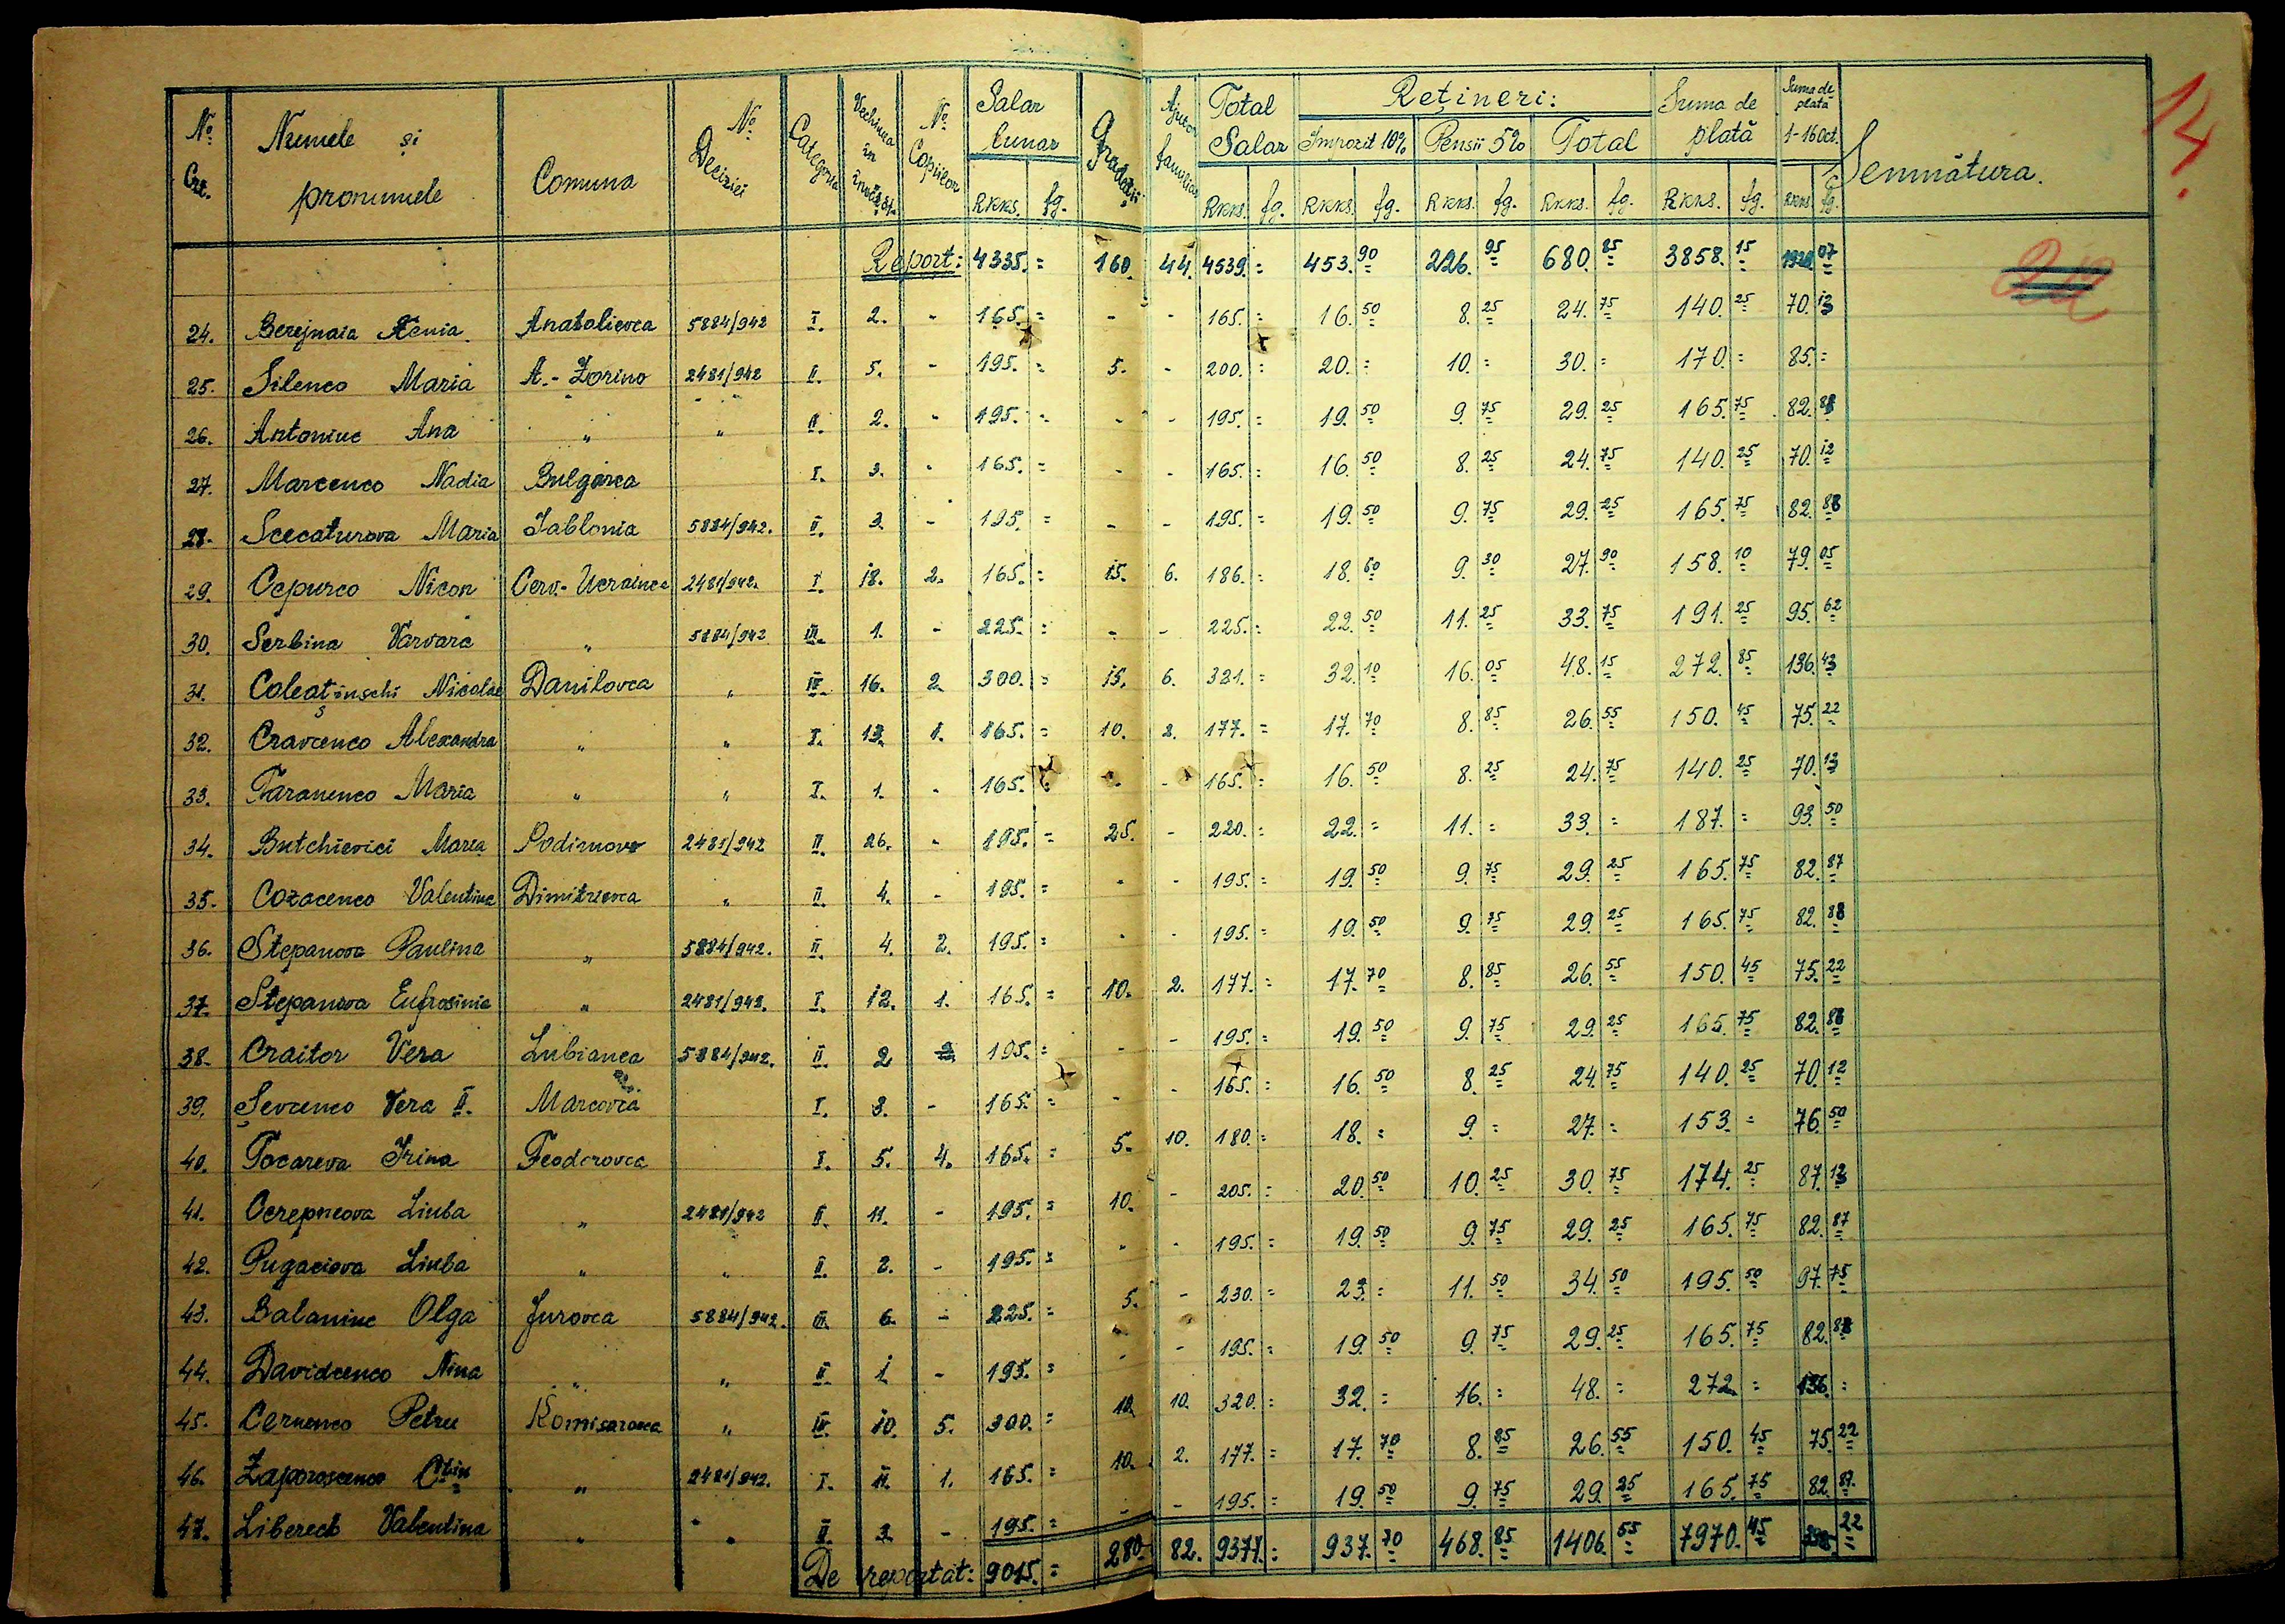 14.
№ Crt. | Numele și pronumele | Comuna | № Deciziei | Categoria | Vechimea în învățăt. | № Copiilor | Salar lunar RKKS. fg. | Gradații | Ajutor familiar | Total Salar RKKS. fg. | Rețineri: Impozit 10% RKKS. fg. | Pensii 5% RKKS. fg. | Total RKKS. fg. | Suma de plată RKKS. fg. | Suma de plată 1-16 Oct. RKKS. fg. | Semnătura.
Report: 4335.= 160. 44. 4539.= 453.90 226.95 680.85 3858.15 07
24. Berejnaia Xenia Anatolievca 5884/942 I. 2. - 165.= - - 165.= 16.50 8.25 24.75 140.25 70.13
25. Silenco Maria A.-Zorino 2481/942 II. 5. - 195.= 5. - 200.= 20.= 10.= 30.= 170.= 85.=
26. Antoniuc Ana " " II. 2. - 195.= - - 195.= 19.50 9.75 29.25 165.75 82.88
27. Marcenco Nadia Bulgarca I. 3. - 165.= - - 165.= 16.50 8.25 24.75 140.25 70.12
28. Scecaturova Maria Iablonia 5884/942. II. 3. - 195.= - - 195.= 19.50 9.75 29.25 165.75 82.88
29. Cepurco Nicon Cerv.-Ucrainca 2481/942. I. 18. 2. 165.= 15. 6. 186.= 18.60 9.30 27.90 158.10 79.05
30. Serbina Varvara " 5884/942 III. 1. - 225.= - - 225.= 22.50 11.25 33.75 191.25 95.62
31. Coleatinschi Nicolae Danilovca " IV. 16. 2. 300.= 15. 6. 321.= 32.10 16.05 48.15 272.85 136.43
32. Cravcenco Alexandra " " I. 13. 1. 165.= 10. 2. 177.= 17.70 8.85 26.55 150.45 75.22
33. Taranenco Maria " " I. 1. - 165.= - - 165.= 16.50 8.25 24.75 140.25 70.13
34. Butchievici Maria Podimovo 2481/942 II. 26. - 195.= 25. - 220.= 22.= 11.= 33.= 187.= 93.50
35. Cozacenco Valentina Dimitrievca " II. 4. - 195.= - - 195.= 19.50 9.75 29.25 165.75 82.87
36. Stepanova Paulina " 5884/942. II. 4. 2. 195.= - - 195.= 19.50 9.75 29.25 165.75 82.88
37. Stepanova Eufrosinia " 2481/942. I. 12. 1. 165.= 10. 2. 177.= 17.70 8.85 26.55 150.45 75.22
38. Craitor Vera Lubianca 5884/942. II. 2 195.= - - 195.= 19.50 9.75 29.25 165.75 82.88
39. Șevcenco Vera II. Marcovca I. 3. - 165.= - - 165.= 16.50 8.25 24.75 140.25 70.12
40. Tocareva Irina Feodorovca I. 5. 4. 165.= 5. 10. 180.= 18.= 9.= 27.= 153.= 76.50
41. Cerepncova Liuba " 2481/942 II. 11. - 195.= 10. - 205.= 20.50 10.25 30.75 174.25 87.13
42. Pugaciova Liuba " " II. 2. - 195.= - - 195.= 19.50 9.75 29.25 165.75 82.87
43. Balaniuc Olga Jurovca 5884/942. III. 6. - 225.= 5. - 230.= 23.= 11.50 34.50 195.50 97.75
44. Davidcenco Nina " " II. 1. - 195.= - - 195.= 19.50 9.75 29.25 165.75 82.88
45. Cernenco Petru Komisarovca " IV. 10. 5. 300.= 10. 10. 320.= 32.= 16.= 48.= 272.= 136.=
46. Zaporoscenco C-tin " 2481/942. I. 11. 1. 165.= 10. 2. 177.= 17.70 8.85 26.55 150.45 75.22
47. Liberect Valentina " " II. 3. - 195.= - - 195.= 19.50 9.75 29.25 165.75 82.87
De reportat: 9015.= 280. 82. 9377.= 937.70 468.85 1406.55 7970.45 22